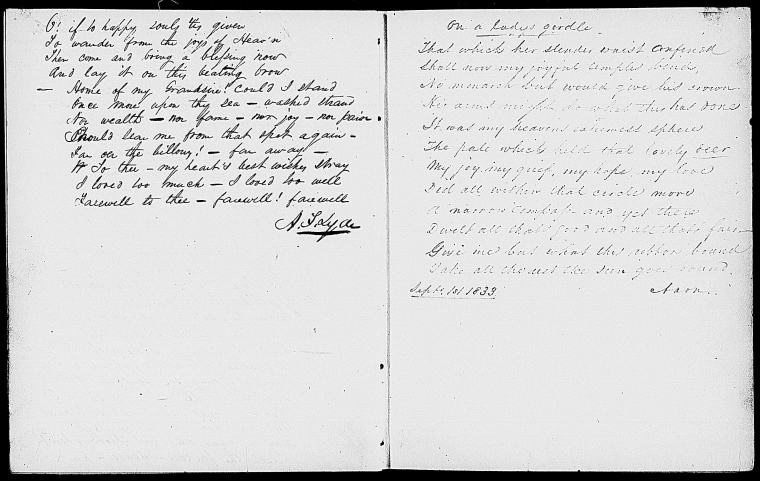 O! if to happy souls 'tis given
To wander from the joys of Heav'n
Then come and bring a blessing now
And lay it on this beating brow
— Home of my Grandsire! could I stand
Once more upon thy sea – washed strand
Nor wealth – nor fame – nor joy – nor pain
Should tear me from that spot again –
Far oer the billows! – far away –
To thee – my heart's best wishes stray
I loved too much – I loved too well
Farewell to thee – farewell! farewell
A. F. Lyde
On a Ladys girdle.
That which her slender waist confined
Shall now my joyful temples bind,
No monarch but would give his crown
His arms might do what this has done
It was my heavens extremest sphere
The pale which held that lovely deer
My joy, my grief, my hope, my love
Did all within that circle move
A narrow compass and yet there
Dwelt all that's good and all that's fair
Give me but what this ribbon bound
Take all the rest the sun goes round.
Sept. 1st 1833.
Anon.